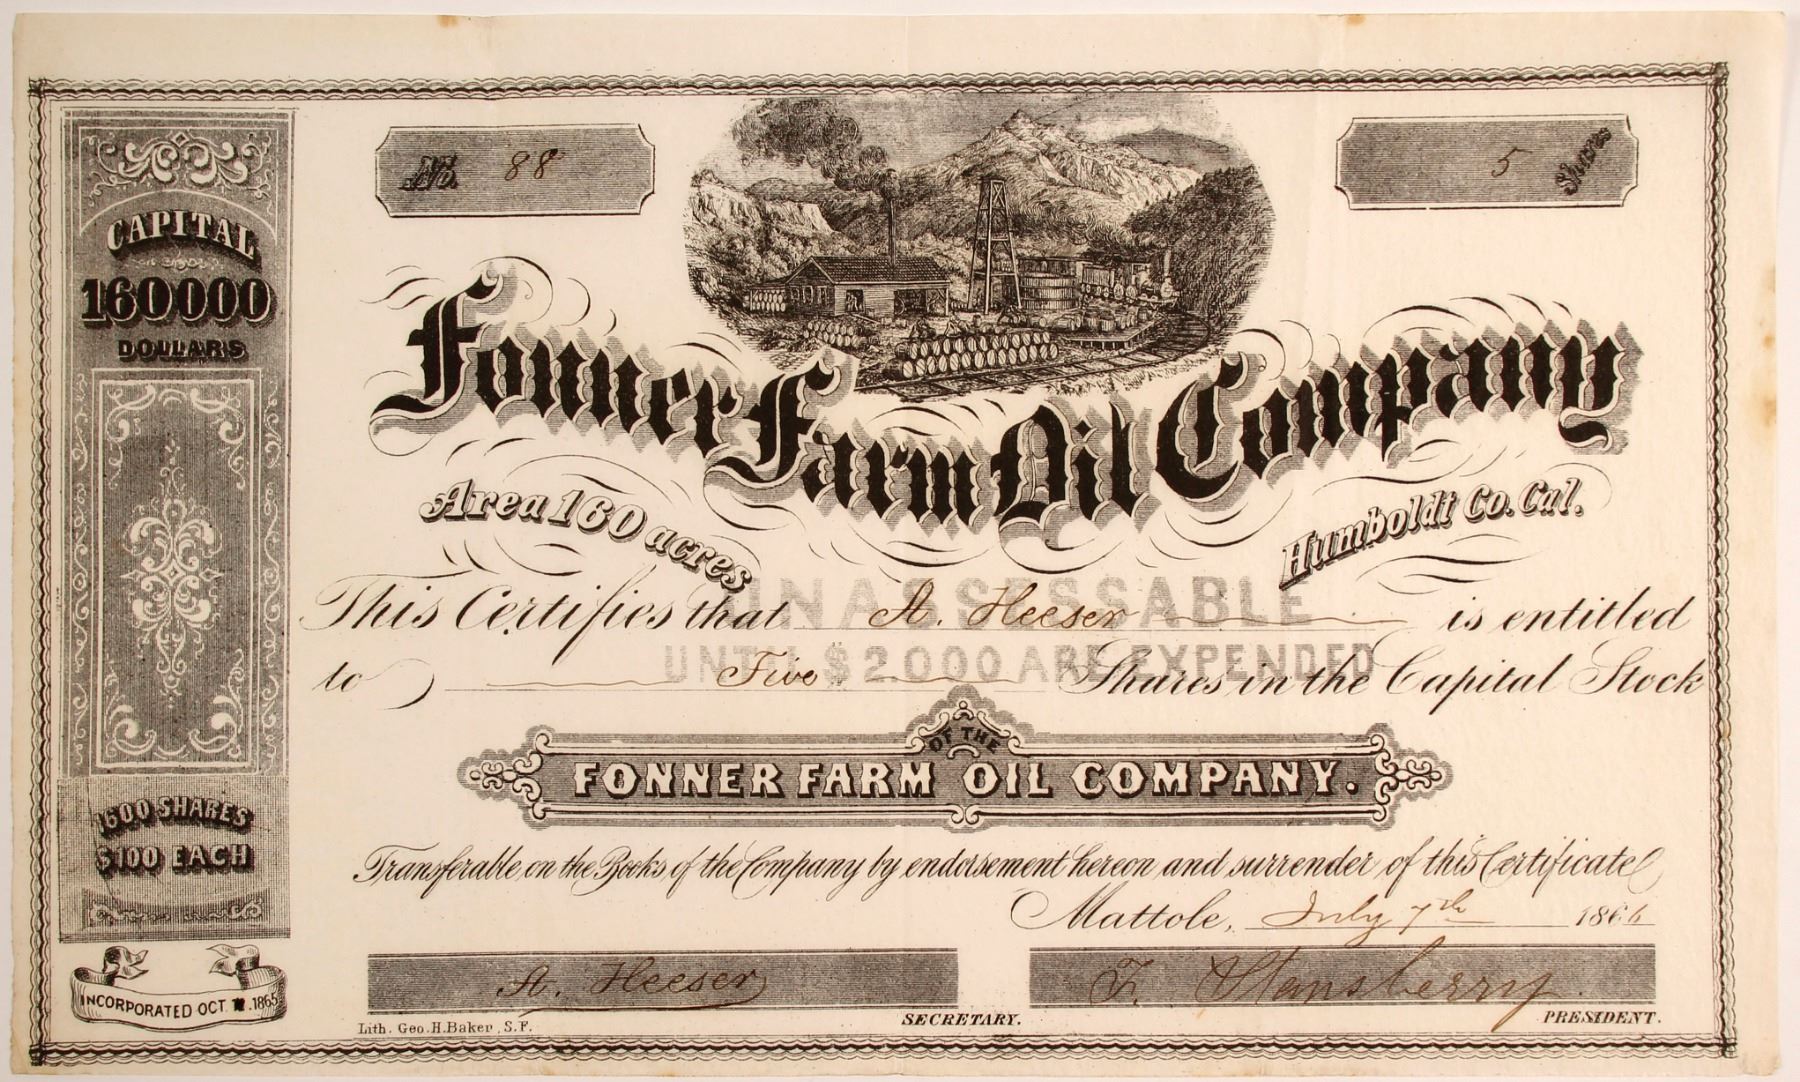 No. 88
5 Shares
CAPITAL
160000
DOLLARS
Fonner Farm Oil Company
Area 160 acres
Humboldt Co. Cal.
UNASSESSABLE
UNTIL $2000 ARE EXPENDED
This Certifies that A. Heeser is entitled
to Five Shares in the Capital Stock
OF THE
FONNER FARM OIL COMPANY.
1600 SHARES
$100 EACH
Transferable on the Books of the Company by endorsement hereon and surrender of this Certificate
Mattole, July 7th 1866
INCORPORATED OCT. .1865
A. Heeser
SECRETARY.
F. Stansberry
PRESIDENT.
Lith. Geo. H. Baker, S.F.